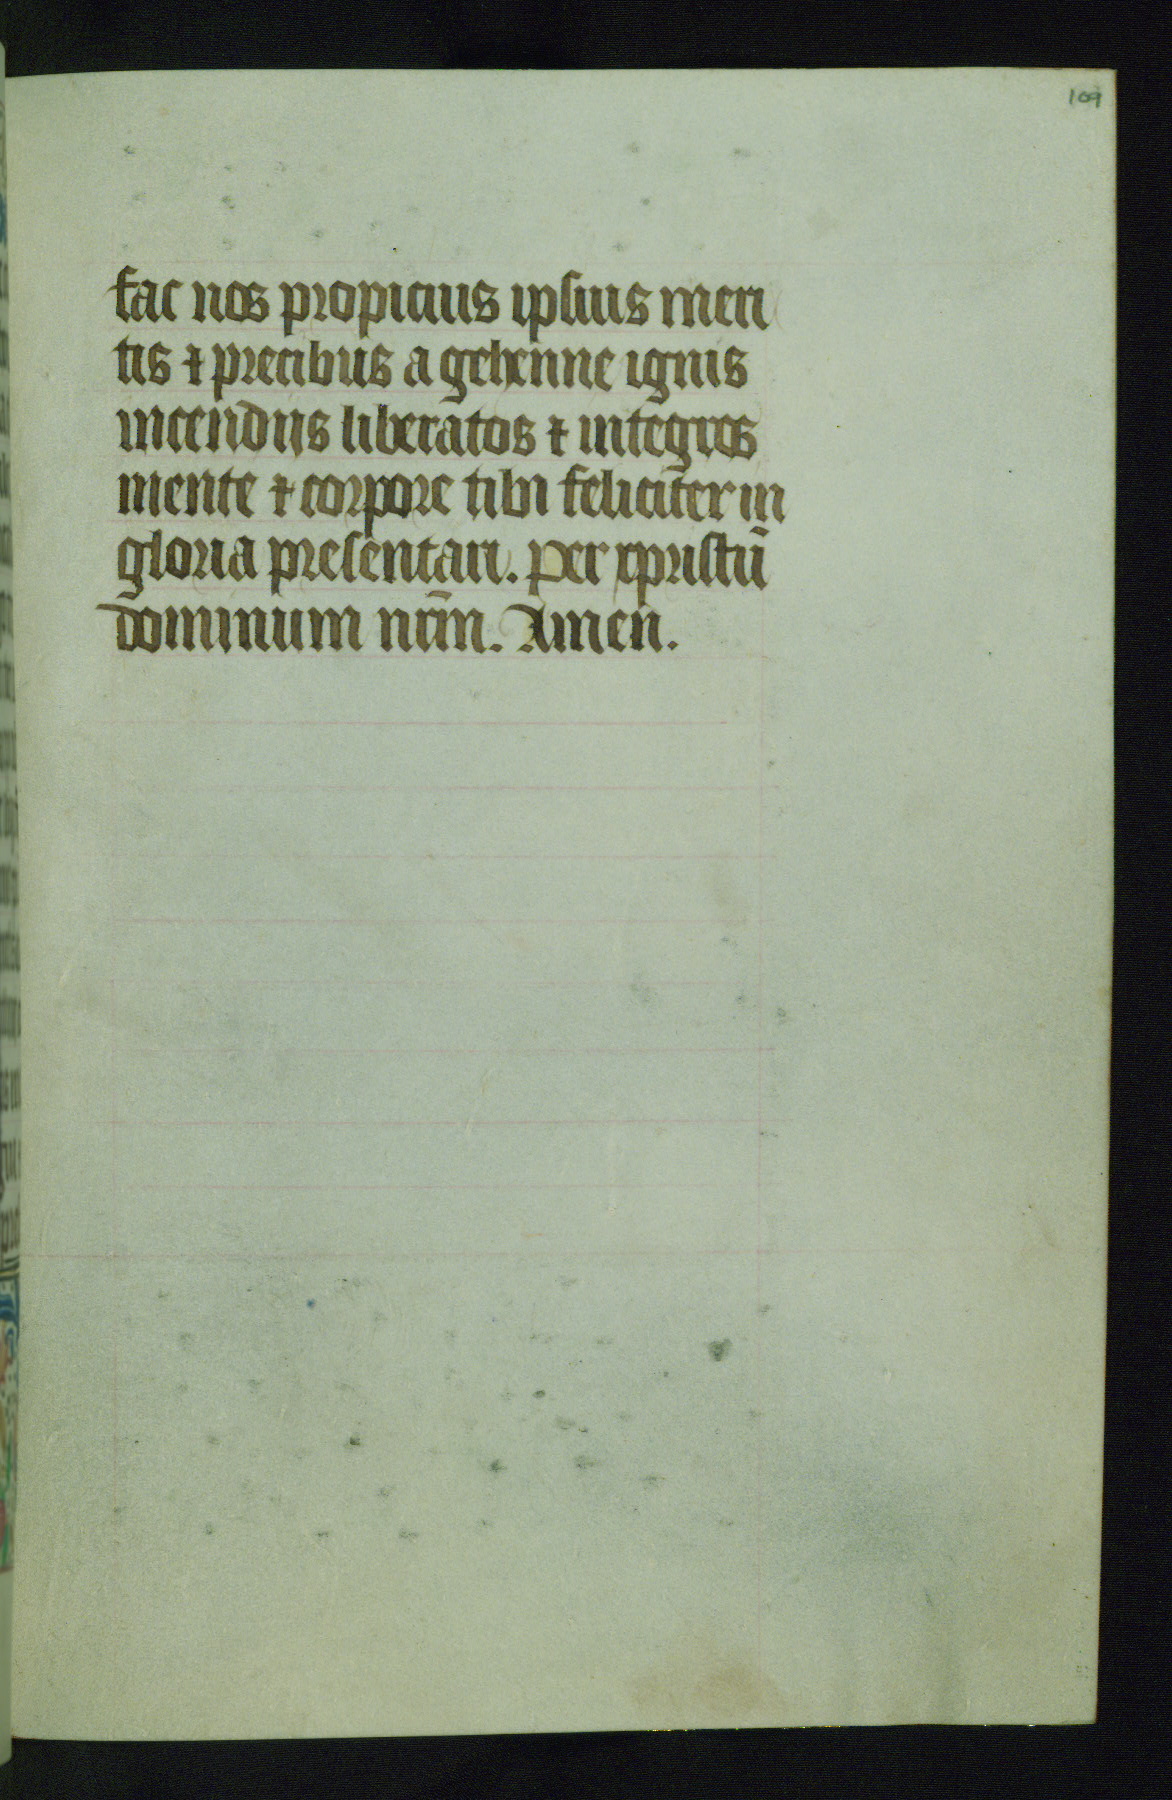 109
fac nos propicius ipsius meri
tis ⁊ precibus a gehenne ignis
incendijs liberatos ⁊ integros
mente ⁊ corpore tibi feliciter in
gloria presentari. Per xpristū
dominum nr̄m. Amen.